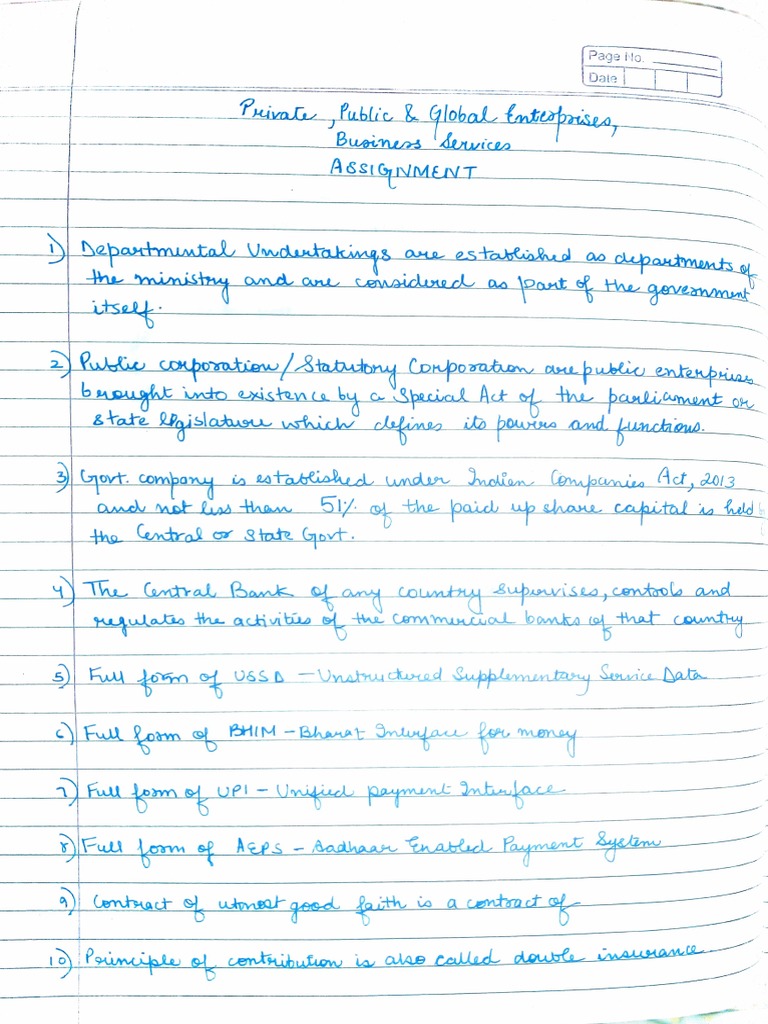 Page No.
Date
Private, Public & Global Enterprises,
Business Services
ASSIGNMENT
1) Departmental Undertakings are established as departments of
the ministry and are considered as part of the government
itself.
2) Public corporation/Statutory Corporation are public enterprises
brought into existence by a Special Act of the parliament or
state legislature which defines its powers and functions.
3) Govt. company is established under Indian Companies Act, 2013
and not less than 51% of the paid up share capital is held
the Central or State Govt.
4) The Central Bank of any country supervises, controls and
regulates the activities of the commercial banks of that country
5) Full form of USSD - Unstructured Supplementary Service Data
6) Full form of BHIM - Bharat Interface for money
7) Full form of UPI - Unified payment Interface
8) Full form of AEPS - Aadhaar Enabled Payment System
9) Contract of utmost good faith is a contract of
10) Principle of contribution is also called double insurance